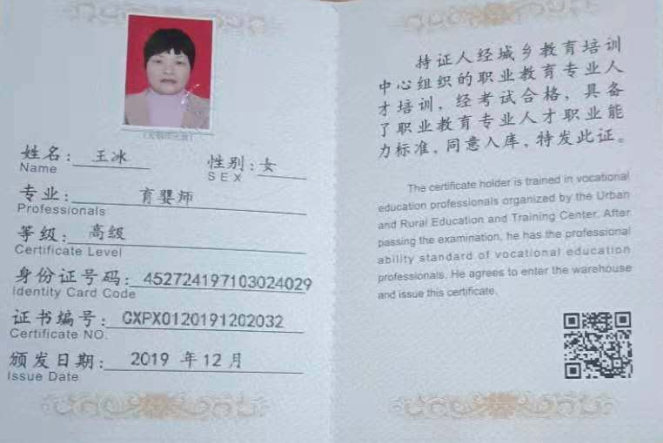 姓名：王冰 性别：女
Name SEX
专业：育婴师
Professionals
等级：高级
Certificate Level
身份证号码：452724197103024029
Identity Card Code
证书编号：CXPX0120191202032
Certificate NO.
颁发日期：2019 年12 月
Issue Date
持证人经城乡教育培训
中心组织的职业教育专业人
才培训，经考试合格，具备
了职业教育专业人才职业能
力标准，同意入库，特发此证。
The certificate holder is trained in vocational
education professionals organized by the Urban
and Rural Education and Training Center. After
passing the examination, he has the professional
ability standard of vocational education
professionals. He agrees to enter the warehouse
and issue this certificate.